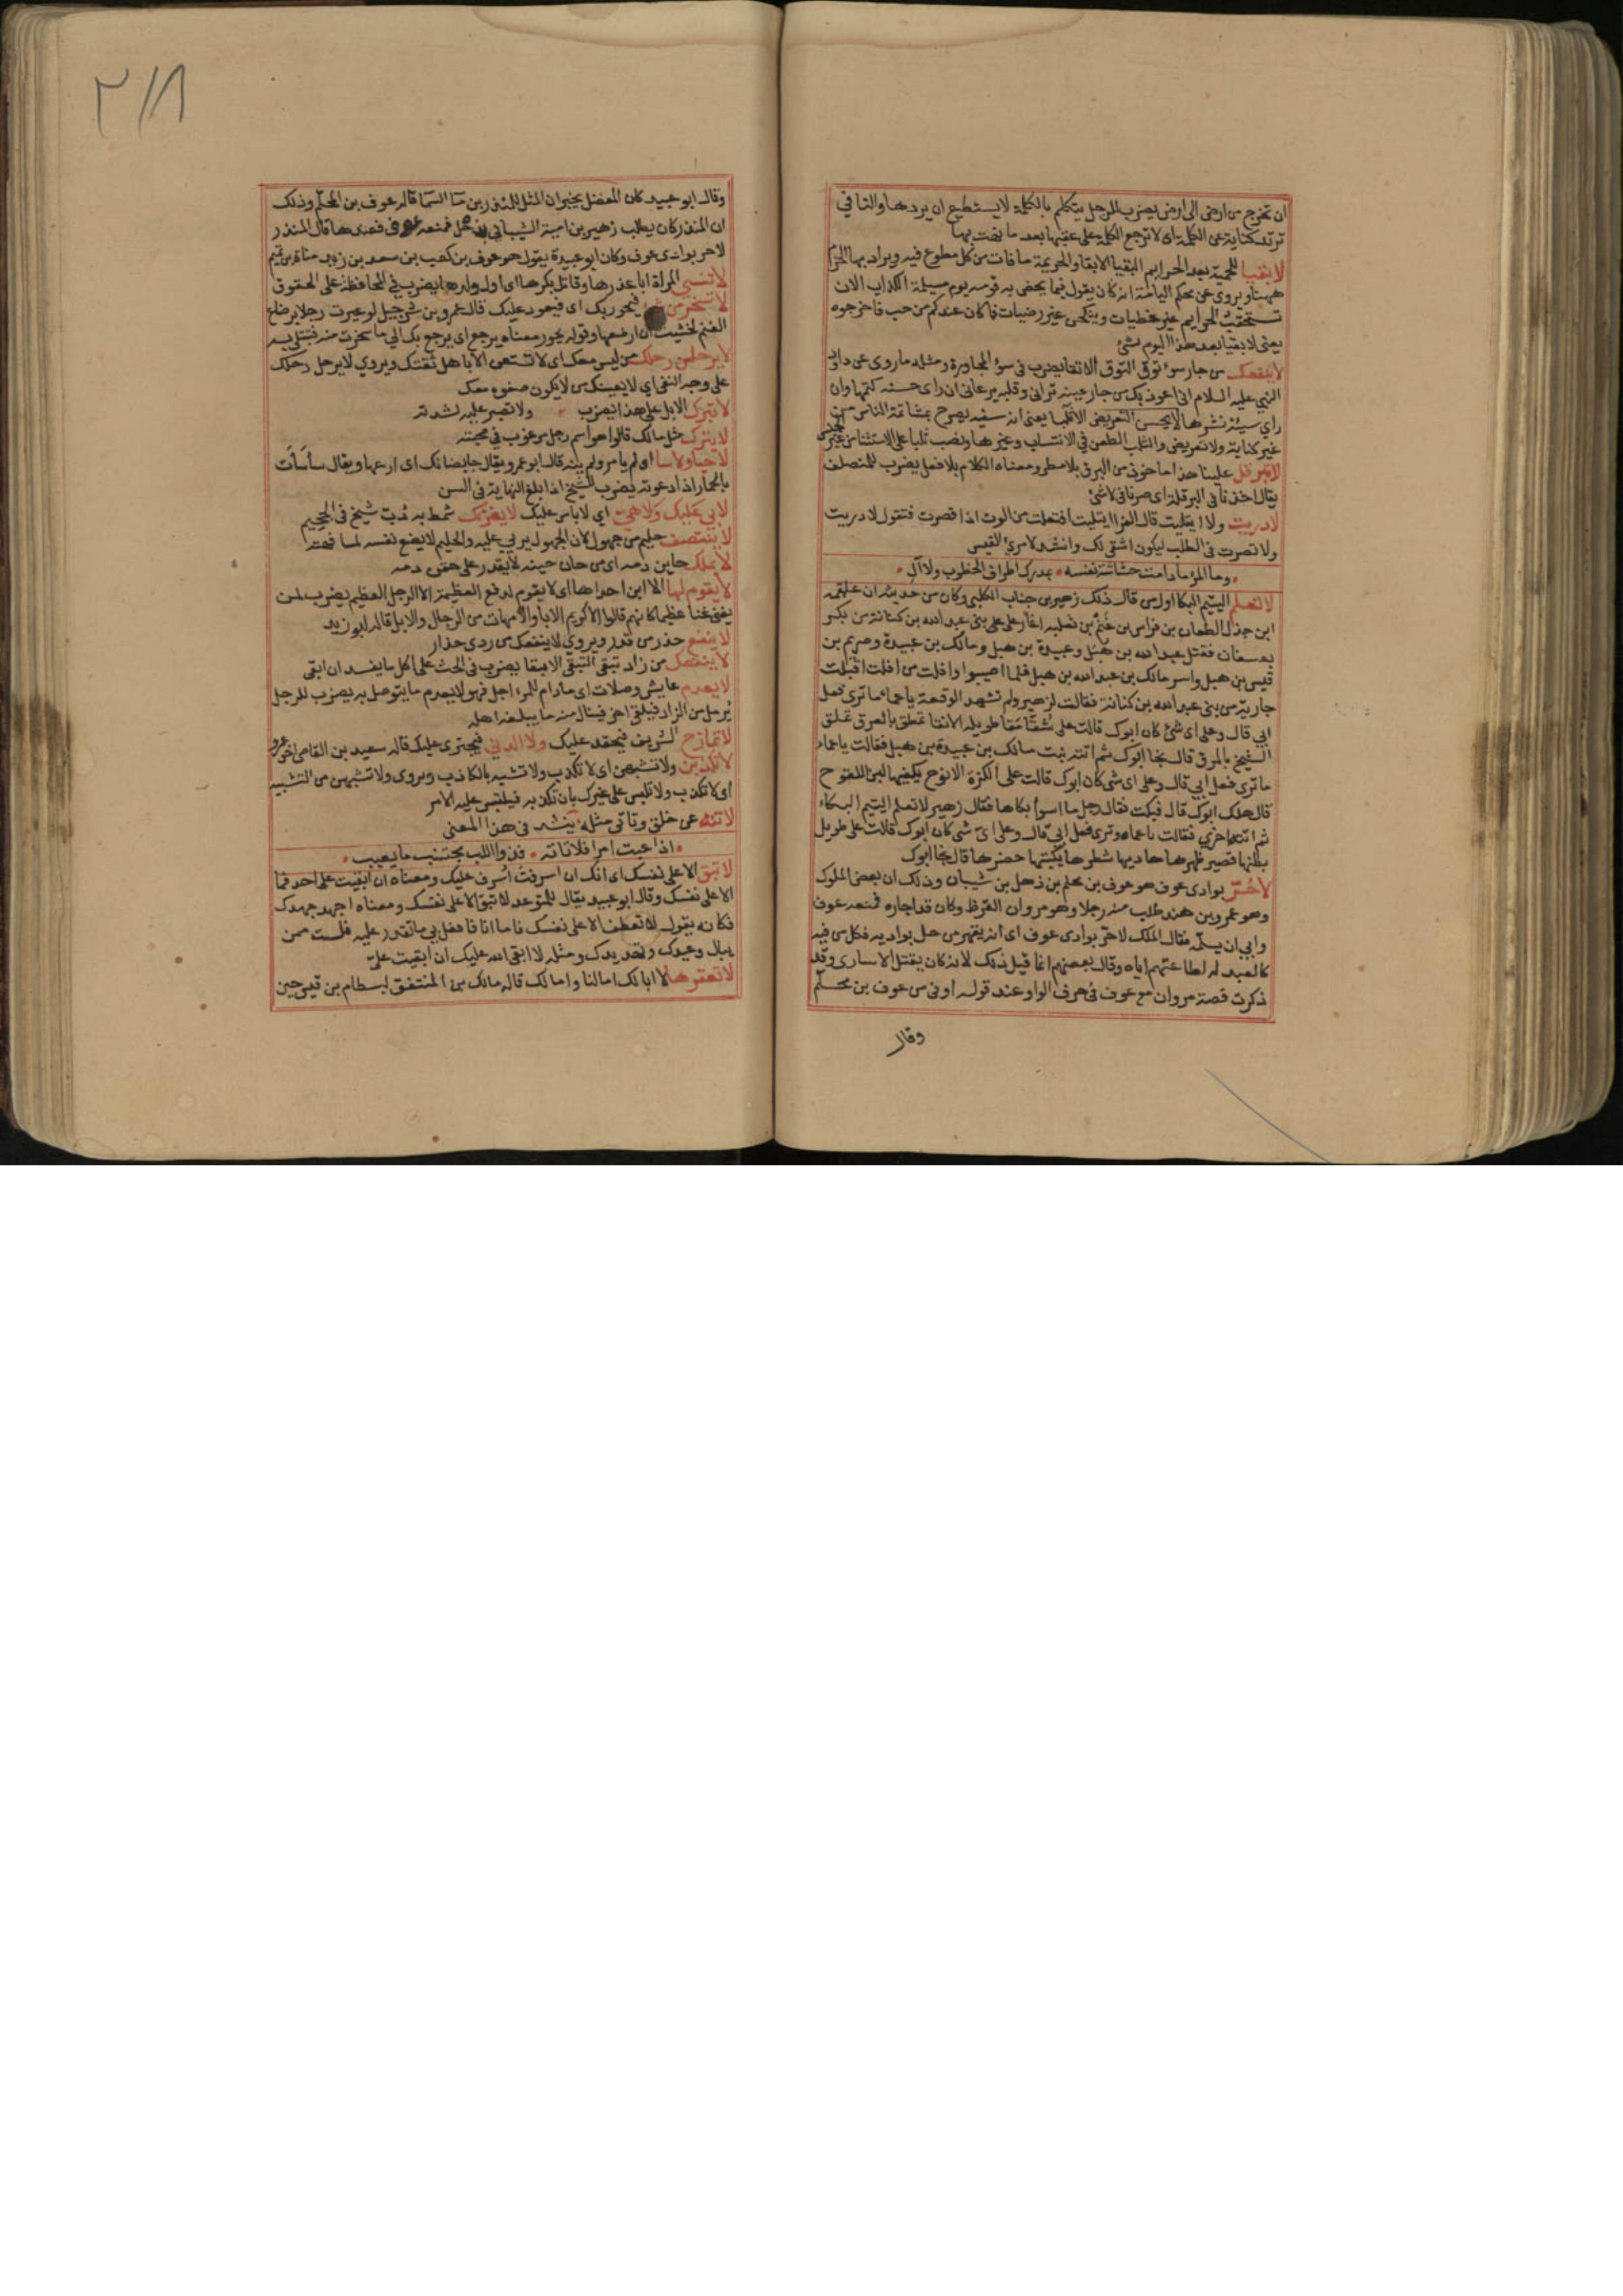 ان تخرج من ارض الى ارض يضرب للرجل يتكلم بالكلمة لا يستطيع ان يردها والتا في
ترتد كناية عن الكلمة اى لا ترجع الكلمة على عقبها بعد ما نضت بها
لا بقيا للحمية بعد الحرايم البقيا الابقا والحريمة ما فات من كل مطموع فيه ويراد بها الحرم
ههنا ويروى عن محكم اليامة انه كان يقول فيما يحض به قومه يوم مسيلمة الكذاب الان
تستحقب الحرايم غير خطيات وينكحن غير رضيات فما كان عندكم من حسب فاخرجوه
يعنى لا بقيا بعد هذا اليوم لشئ
لا ينفعك من جار سوء توق التوق الاتقا يضرب فى سوء المجاورة ومثله ما روى عن داود
النبي عليه السلام انى اعوذ بك من جار عينه ترانى وقلبه يرعانى ان راى حسنه كتمها وان
راي سيئة نشرها لا يحسن التعريض الا ثلبا يعنى انه سفيه يصرح بمشاتمة الناس من
غير كناية ولا تعريض والثلب الطعن في الانتساب وغيرها ونصب ثلبا على الاستثنا من غير الجنس
لا تبرقل علينا هذا ماخوذ من البرق بلا مطر ومعناه الكلام بلا فعل يضرب للمتصلف
يقال اخذنا في البرقلة اى صرنا فى لا شئ
لا دريت ولا ايتليت قال الفرا ايتليت افتعلت من الوت اذا قصرت فتقول لا دريت
ولا قصرت فى الطلب ليكون اشقى لك وانشد لامرئ القيس
وما المرؤ ما دامت حشاشة نفسه بمدرك اطراف الخطوب ولا آل
لا تعلم اليتيم البكا اول من قال ذلك زهير بن جناب الكلبي وكان من حديثه ان علقمة
ابن جذل الطعان بن فراس بن غنم بن ثعلبة اغار على بنى عبد الله بن كنانة من بكر
بعسفان فقتل عبد الله بن هبل وعبيدة بن هبل ومالك بن عبيدة وصريم بن
قيس بن هبل واسر مالك بن عبد الله بن هبل فلما اصيبوا وافلت من افلت اقبلت
جارية من بنى عبد الله بن كنانة فقالت لزهير ولم تشهد الوقعة يا عماه ما ترى فعل
ابي قال وعلى اى شئ كان ابوك قالت على شقا مقا طويلة الانقا تمطق بالعرق تمطق
الشيخ بالمرق قال نجا ابوك ثم اتته بنت مالك بن عبيدة بن هبل فقالت يا عماه
ما ترى فعل ابي قال وعلى اى شئ كان ابوك قالت على الكزة الانوح يكفيها لبن اللقوح
قال هلك ابوك قال فبكت فقال رجل ما اسوا بكاها فقال زهير لا تعلم اليتيم البكاء
ثم اتته اخرى فقالت يا عماه وترى فعل ابي قال وعلى اى شئ كان ابوك قالت على طويل
بطنها قصير ظهرها هاديها شطرها يكبتها حضرها قال نجا ابوك
لا حر بوادى عوف هو عوف بن محلم بن ذهل بن شيبان وذلك ان بعض الملوك
وهو عمرو بن هند طلب منه رجلا وهو مروان القرظ وكان قد اجاره فمنعه عوف
وابي ان يسلمه فقال الملك لا حر بوادى عوف اى انه يقهر من حل بواديه فكل من فيه
كالعبد له لطاعتهم اياه وقال بعضهم انما قيل ذلك لانه كان يقتل الاسارى وقد
ذكرت قصة مروان مع عوف في حرف الواو عند قوله اوفى من عوف بن محلم
وقال
٢١٨
وقال ابو عبيد كان المفضل يخبر ان المثل للمنذر بن ماء السما قاله عوف بن المحلم وذلك
ان المنذر كان يطلب زهير بن امية الشيباني بذحل فمنعه عوف فعندها قال المنذر
لا حر بوادى عوف وكان ابو عبيدة يقول هو عوف بن كعب بن سعد بن زيد مناة بن تميم
لا تنسى المراة ابا عذرها وقاتل بكرها اى اول ولدها يضرب في المحافظة على الحقوق
لا تسخر من شئ فيحور بك اى فيعود عليك قال عمرو بن شرحبيل لو عيرت رجلا برضاع
الغنم لخشيت ان ارضعها وقوله يحور معناه يرجع اى يرجع بك الى ما سخرت منه فتبتلى به
لا يرحلن رحلك من ليس معك اى لا تستعن الا باهل ثقتك ويروي لا يرحل رحلك
على وجه النفى اي لا يعينك من لا يكون صغوه معك
لا تبرك الابل على هذا يضرب ولا تصبر عليه لشدته
لا يترك مثل مالك قالوا هو اسم رجل مرغوب في صحبته
لا حيا ولا سا اى لم يامر ولم ينه قال ابو عمرو يقال جا بضانك اى ارعها ويقال ساسات
بالحمار اذا دعوته يضرب للشيخ اذا بلغ النهاية فى السن
لا بي عليك ولا هي اي لا باس عليك لا يغرنك شمط به دب شيخ فى الجحيم
لا ينتصف حليم من جهول لان الجهول يربي عليه والحليم لا يضع نفسه لمسافهته
لا يملك حاين دمه اى من حان حينه لا يقدر على حقن دمه
لا يقوم لها الا ابن احداها اى لا يقوم لدفع العظيمة الا الرجل العظيم يضرب لمن
يغني غنا عظيما كانهم قالوا الا كريم الابا والامهات من الرجال والابل قاله ابو زيد
لا ينفع حذر من قدر ويروي لا ينفعك من ردى حذار
لا ينفعك من زاد تبقى التبقي الابقا يضرب في الحث على اكل ما يفسد ان ابقى
لا يعدم عايش وصلات اى ما دام للمرء اجل فهو لا يعدم ما يتوصل به يضرب للرجل
يرمل من الزاد فيلقى اخر فينال منه ما يبلغه اهله
لا تمازح الشريف فيحقد عليك ولا الدني فيجترى عليك قاله سعيد بن العاصى اخو عمرو
لا تكذبن ولا تشبهن اى لا تكذب ولا تشبه بالكاذب ويروى ولا تشبهن من التشبيه
اى لا تكذب ولا تلبس على غيرك بان تكذب فيلتبس عليه الامر
لا تنه عن خلق وتاتى مثله ينشد فى هذا المعنى
اذا عبت امرا فلا تاته فذو اللب مجتنب ما يعيب
لا تبق الا على نفسك اى انك ان اسرفت اسرف عليك ومعناه ان ابقيت على احد فما
الا على نفسك وقال ابو عبيد يقال للمتوعد لا تبق الا على نفسك ومعناه اجهد جهدك
فكانه يقول لا تعطف الا على نفسك فاما انا فافعل بي ما تقدر عليه فلست ممن
يبال وعيدك وتهديدك ومثله لا ابقى الله عليك ان ابقيت على
لا تعقرها لا ابا لك اما لنا واما لك قاله مالك بن المنتفق لبسطام بن قيس حين